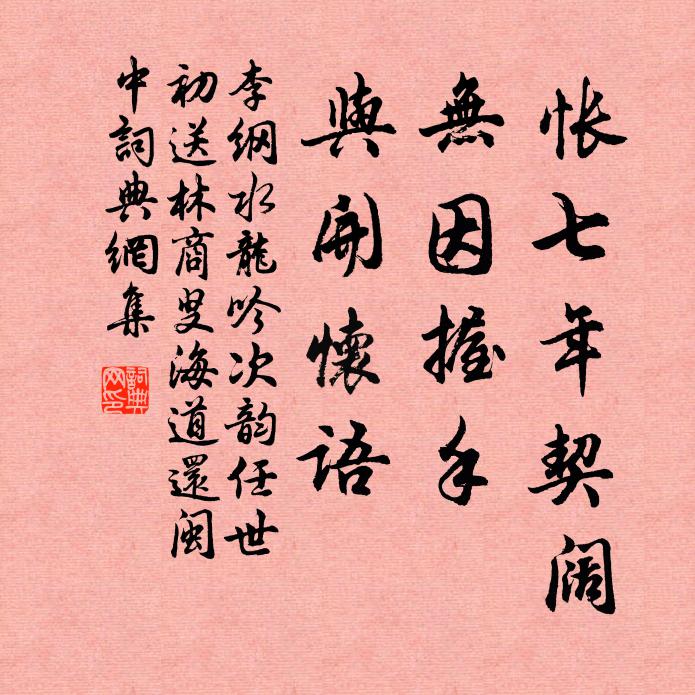 悵七年契阔
無因握手
與開懷語
李綱水龍吟次韵任世
初送林商叟海道還闽
中詞典網集
詞典
网印